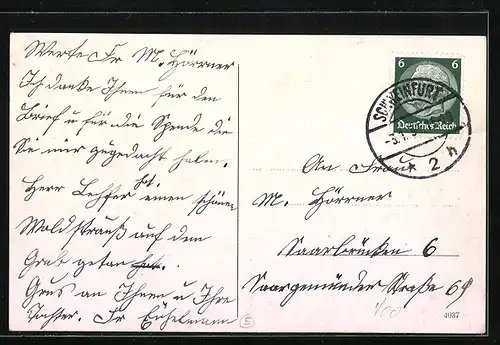 Werte Fr M. Hörner
Ich danke Ihnen für den
Brief u für die Spende die
Sie mir zugedacht haben.
Herr hat einen schönen
Waldstrauß auf den
Grab getan hat.
Grus an Ihnen u Ihre
Tochter. Fr
6 6
Deutsches Reich
SCHWEINFURT
2 h
An Frau
M. Hörner
Saarbrücken 6
Saargemünder Straße 69
4037